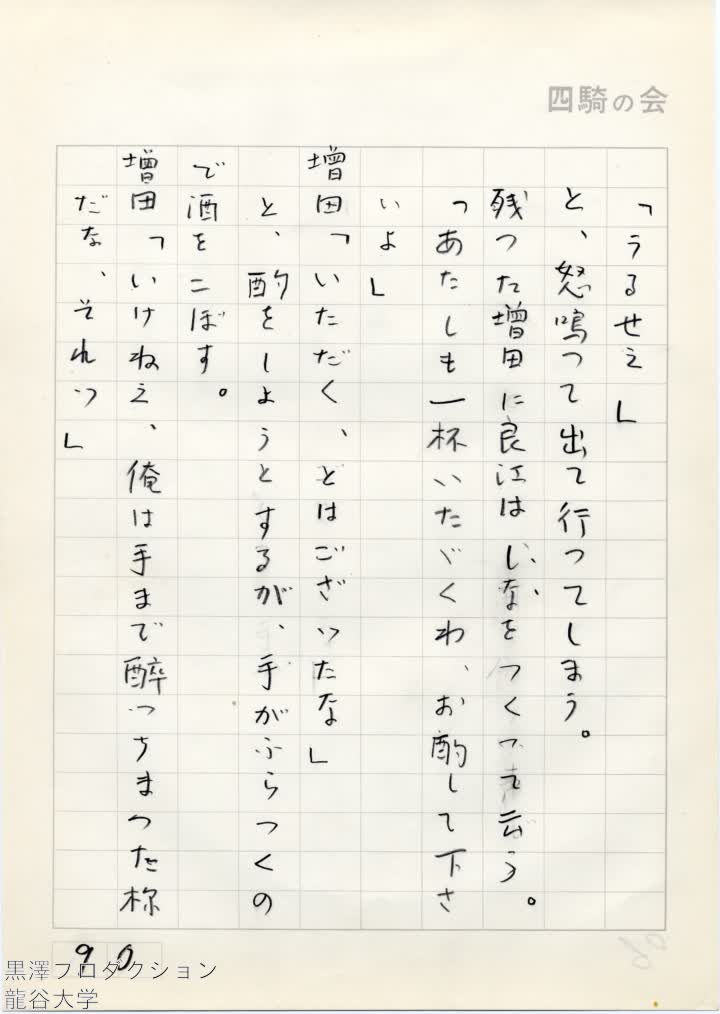 四騎の会
「うるせえ」
と、怒鳴つて出て行つてしまう。
残つた増田に良江はしなをつくつて云う。
「あたしも一杯いたゞくわ、お酌して下さ
いよ」
増田「いただく、とはございつたな」
と、酌をしようとするが、手がふらつくの
で酒をこぼす。
増田「いけねえ、俺は手まで酔つちまつた様
だな、それつ」
90
黒澤プロダクション
龍谷大学